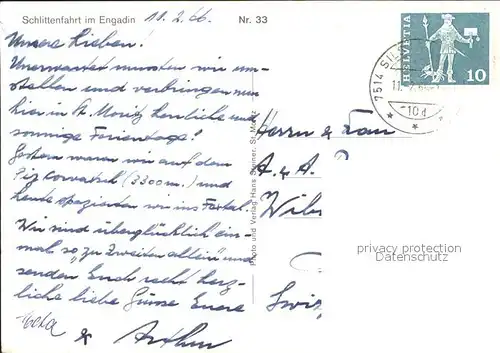 Schlittenfahrt im Engadin
11.2.66.
Nr. 33
Unsere Lieben!
Unerwartet mussten wir um-
stellen und verbringen nun
hier in St. Moritz herrliche und
sonnige Ferientage!
Gestern waren wir auf dem
Piz Corvatsch (3300 m.) und
heute spazierten wir ins Fextal.
Wir sind überglücklich ein-
mal so "zu Zweiten allein" und
senden Euch recht herz-
liche liebe Grüsse Eure
& Arthur
Photo und Verlag Hans Steiner, St. Moritz
HELVETIA
10
7514 SIL
Herrn & Frau
A. & A.
privacy protection
Datenschutz